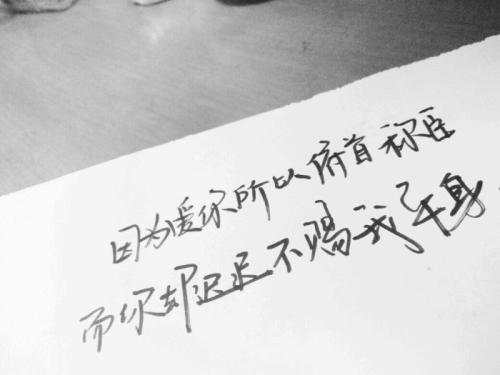 因为爱你所以俯首称臣
而你却迟迟不赐我平身